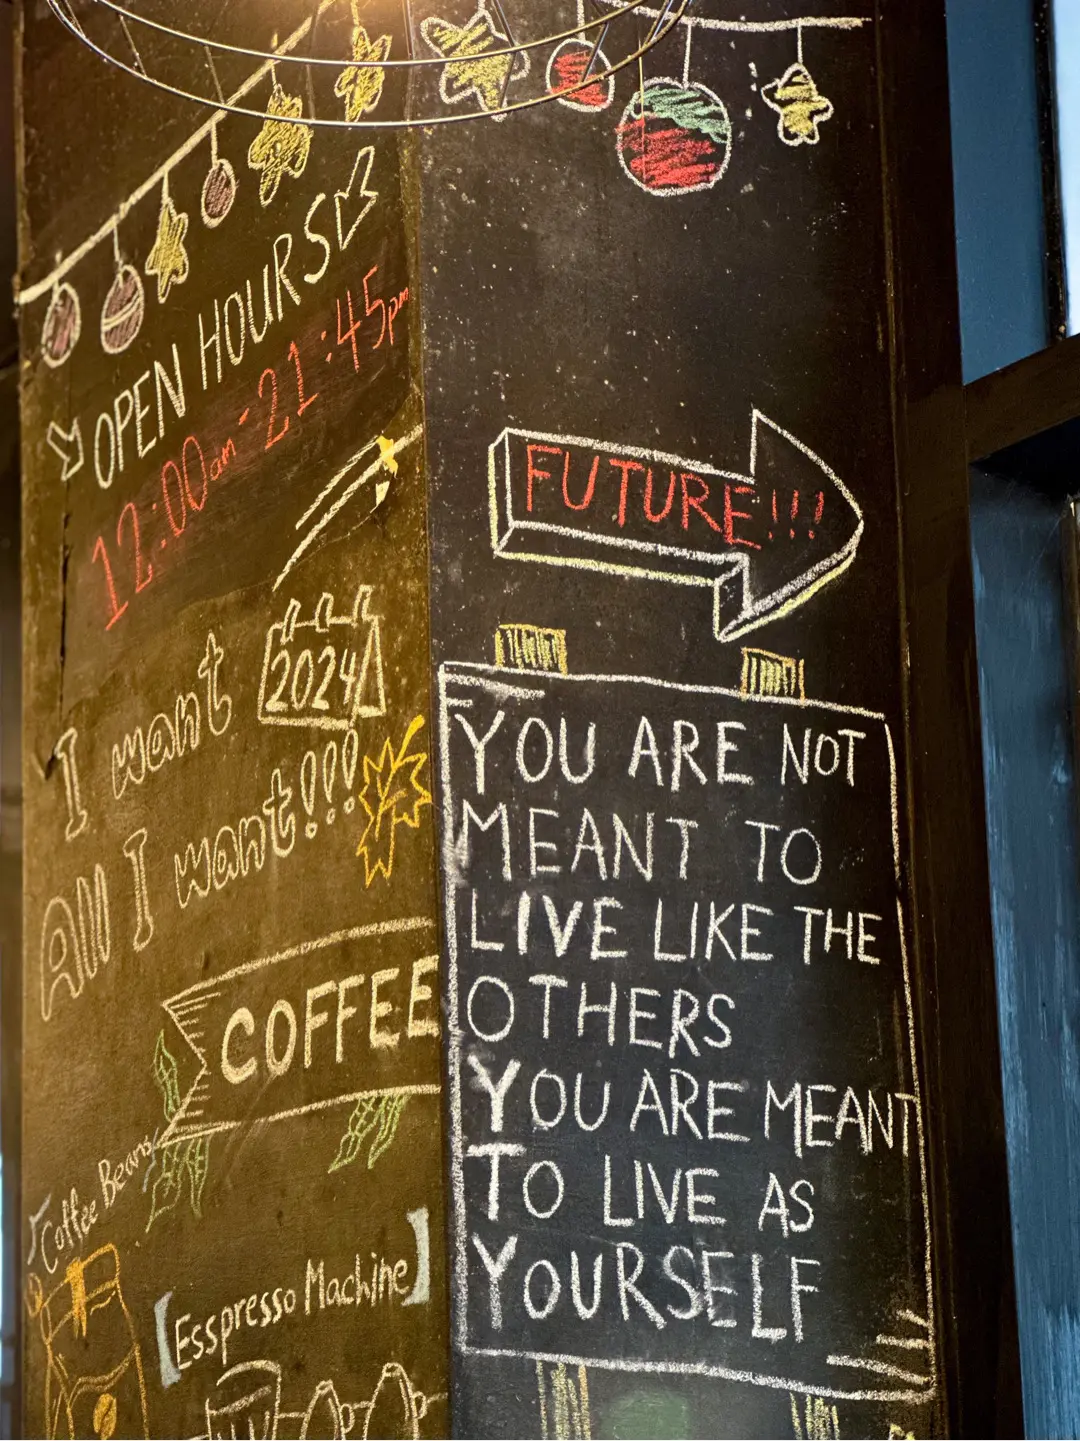 OPEN HOURS
12:00am-21:45pm
2024
I want
All I want!!!
COFFEE
Coffee Beans
[Esspresso Machine]
FUTURE!!!
YOU ARE NOT
MEANT TO
LIVE LIKE THE
OTHERS
YOU ARE MEANT
TO LIVE AS
YOURSELF